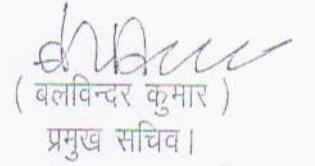 ( बलविन्दर कुमार )
प्रमुख सचिव।